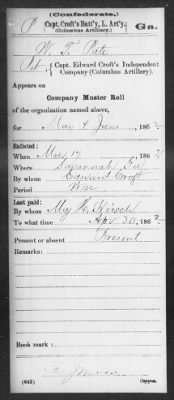 (Confederate.)
P Capt. Croft's Batt'y, L. Art'y. Ga.
(Columbus Artillery.)
W. T. Pate
Pvt, Capt. Edward Croft's Independent
Company (Columbus Artillery).
Appears on
Company Muster Roll
of the organization named above,
for May & June, 1862
Enlisted:
When May 17, 1862
Where Savannah
By whom Edward Croft
Period War
Last paid:
By whom Maj. Hirsch
To what time 30, 1862
Present or absent Present
Remarks:
Book mark:
(642) Copyist.